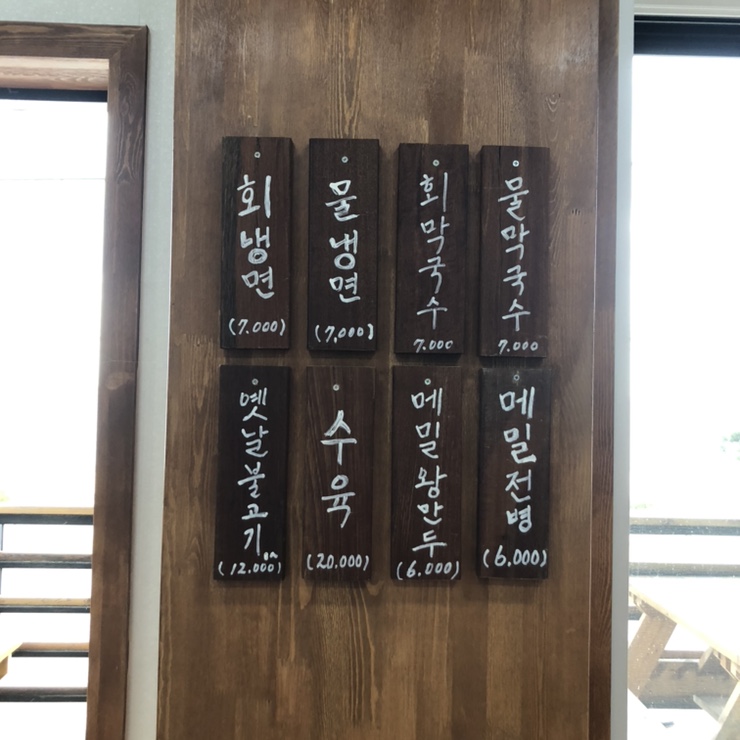 회냉면
(7.000)
물냉면
(7,000)
회막국수
7.000
물막국수
7.000
옛날불고기
(12.000)
수육
(20,000)
메밀왕만두
(6.000)
메밀전병
(6.000)